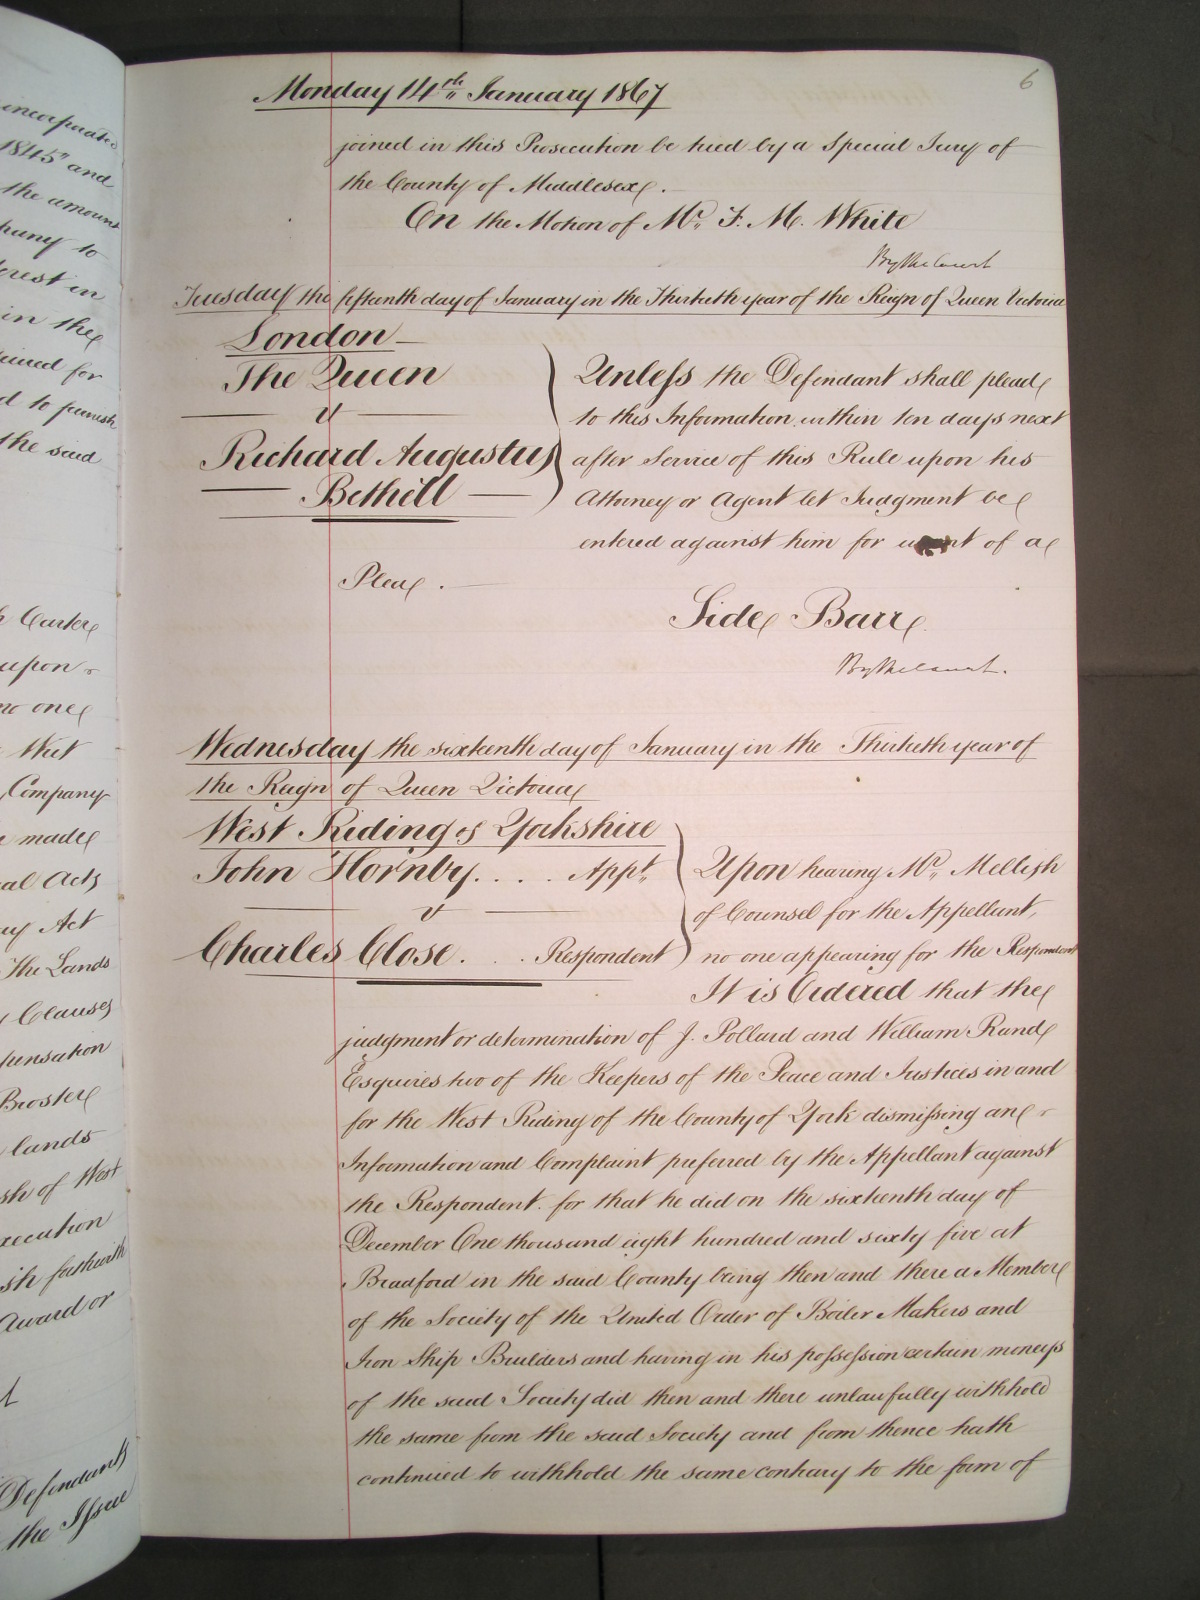 6
Monday 14th January 1867
joined in this Prosecution be tried by a Special Jury of
the County of Middlesex.
On the Motion of Mr. F. M. White
By the Court
Tuesday the fifteenth day of January in the Thirtieth year of the Reign of Queen Victoria
London
The Queen
v
Richard Augustus
Bethell
Unless the Defendant shall plead
to this Information within ten days next
after Service of this Rule upon his
Attorney or Agent let Judgment be
entered against him for want of a
Plea.
Side Barr
By the Court.
Wednesday the sixteenth day of January in the Thirtieth year of
the Reign of Queen Victoria
West Riding of Yorkshire
John Hornby.... Appt.
v
Charles Close... Respondent
Upon hearing Mr. Mellish
of Counsel for the Appellant,
no one appearing for the Respondent
It is Ordered that the
judgment or determination of J. Pollard and William Rand
Esquires two of the Keepers of the Peace and Justices in and
for the West Riding of the County of York dismissing an
Information and Complaint preferred by the Appellant against
the Respondent for that he did on the sixteenth day of
December One thousand eight hundred and sixty five at
Bradford in the said County being then and there a Member
of the Society of the United Order of Boiler Makers and
Iron Ship Builders and having in his possession certain moneys
of the said Society did then and there unlawfully withhold
the same from the said Society and from thence hath
continued to withhold the same contrary to the form of
incorporated
1845" and
the amount
pany to
erest in
in the
d to punish
the said
Carter
upon
no one
West
Company
made
al Acts
ay Act
The Lands
Clauses
pensation
Broster
lands
sh of West
xecution
sh forthwith
award or
Defendants
the Issue